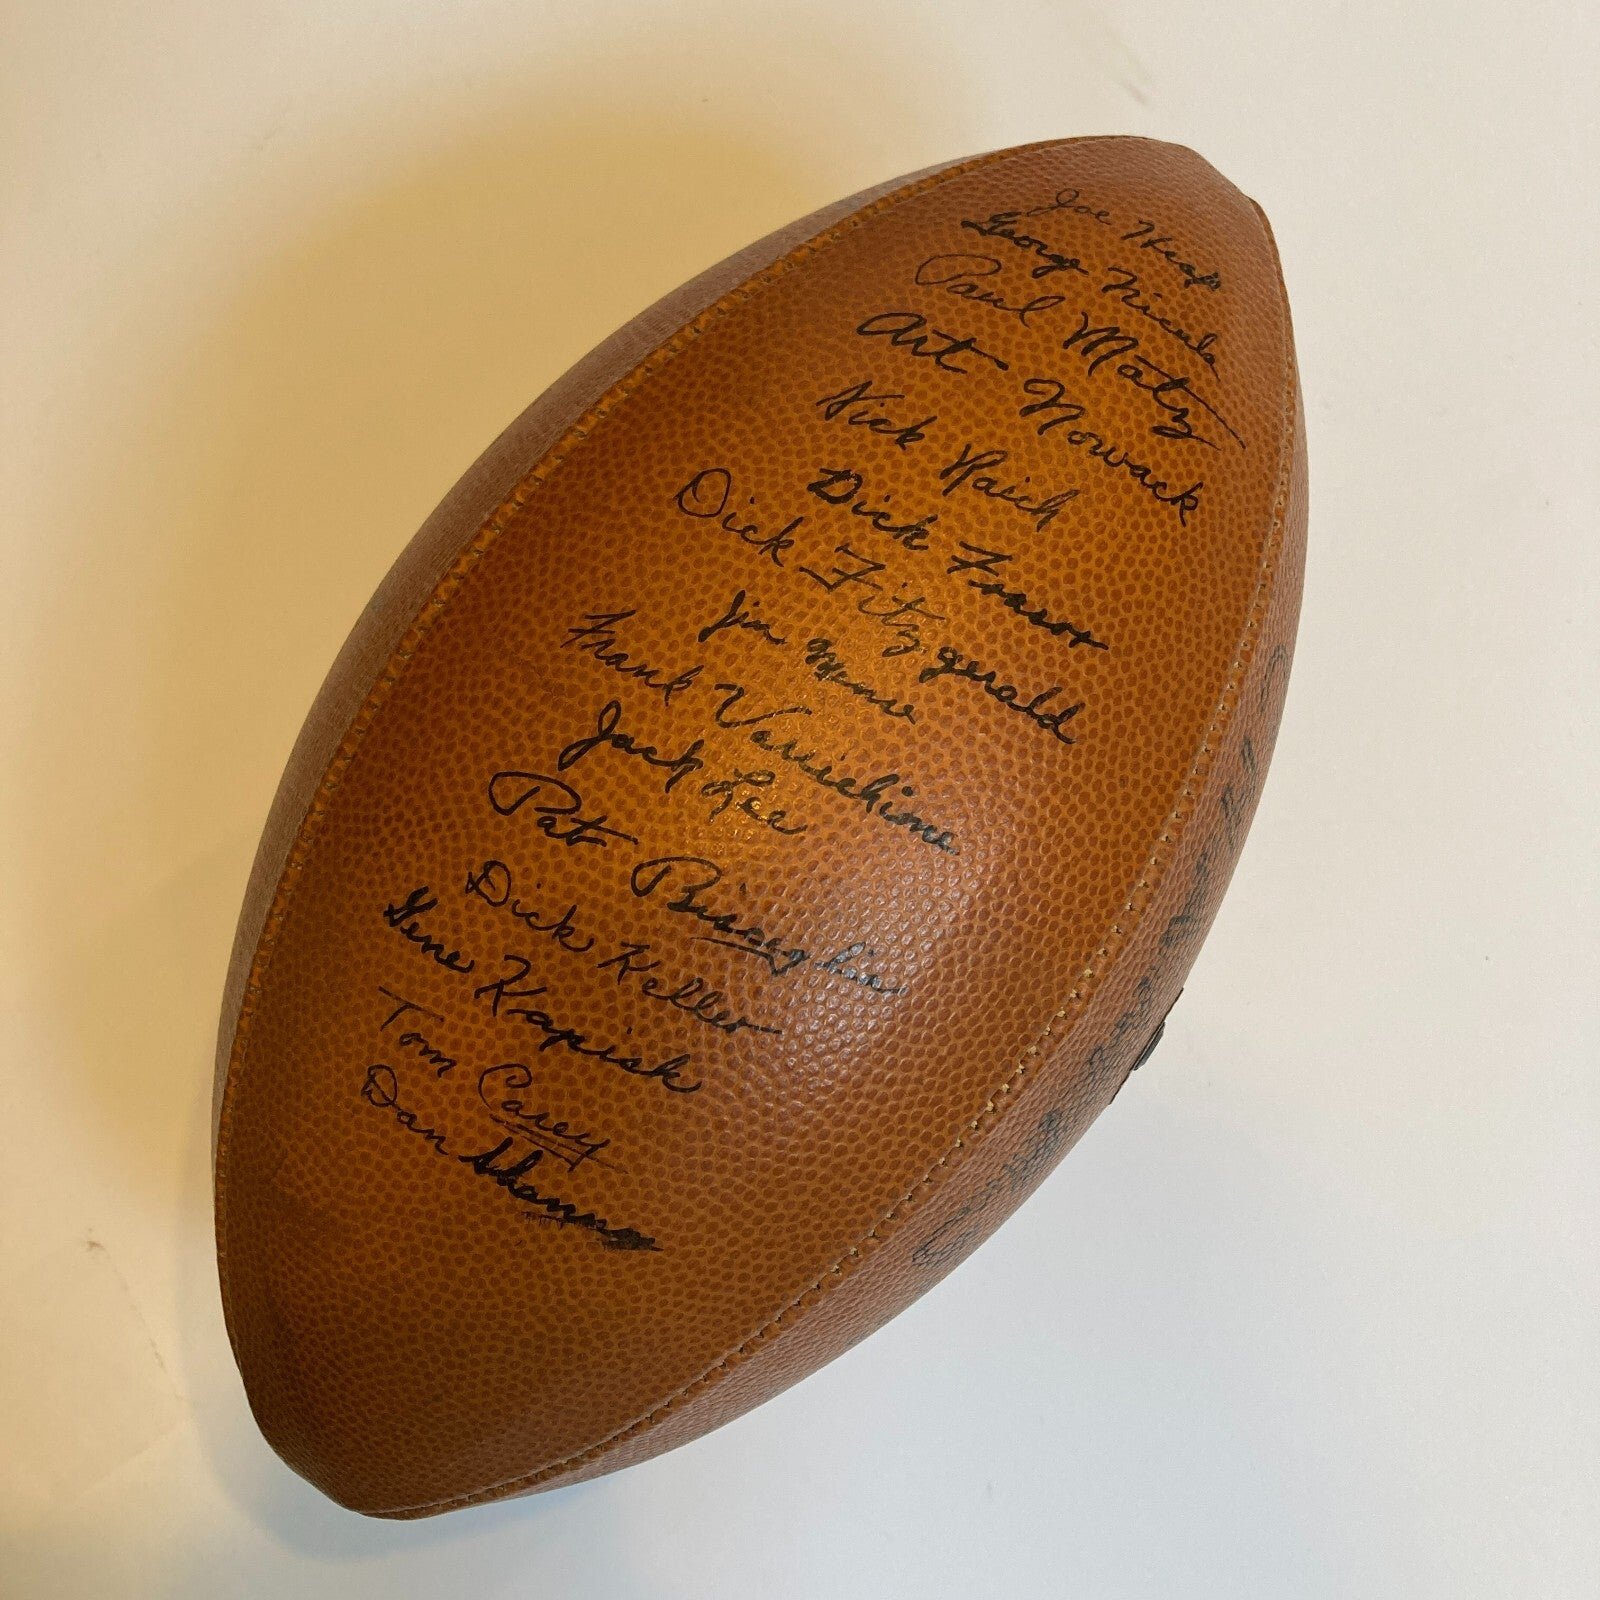 Joe Heap
George Nicula
Paul Matz
Art Nowack
Nick Raich
Dick Frasor
Dick Fitzgerald
Jim Mense
Frank Varrichione
Jack Lee
Pat Bisceglia
Dick Keller
Gene Kapish
Tom Carey
Dan Shannon